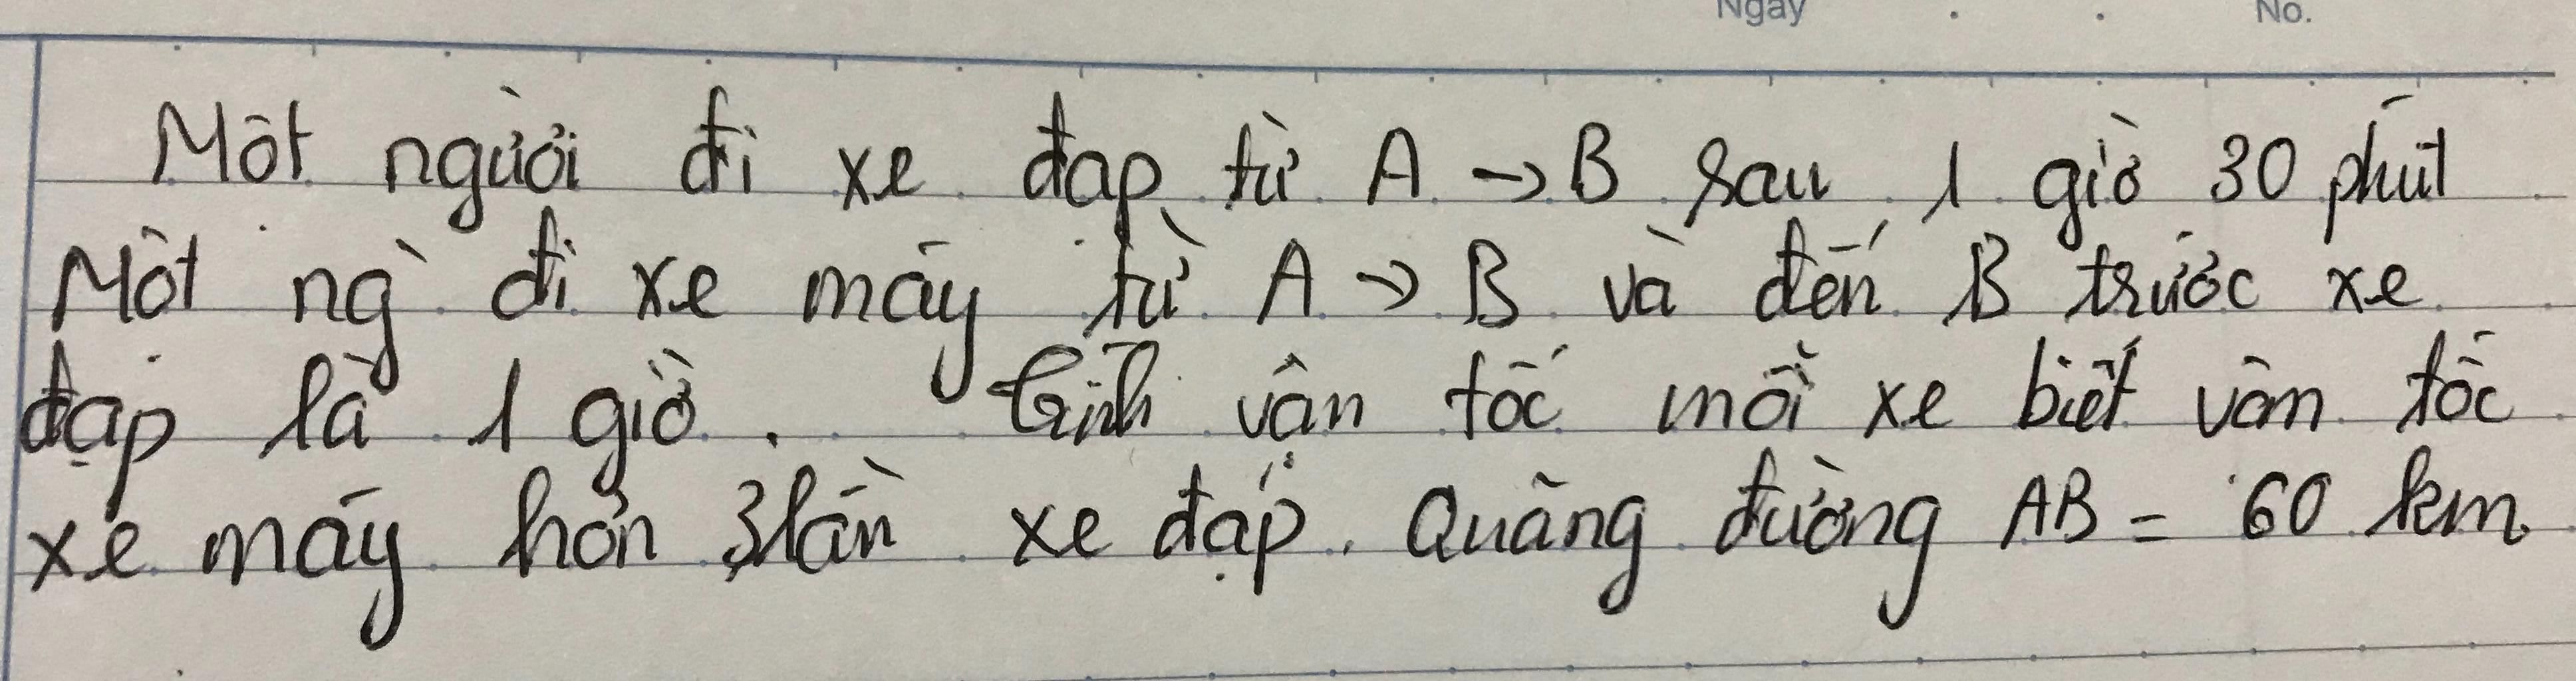 Ngày No.
Một người đi xe đạp từ A → B sau 1 giờ 30 phút
Một ng` đi xe máy từ A → B và đến B trước xe
đạp là 1 giờ. Tính vận tốc mỗi xe biết vận tốc
xe máy hơn 3 lần xe đạp. Quãng đường AB = 60 km.